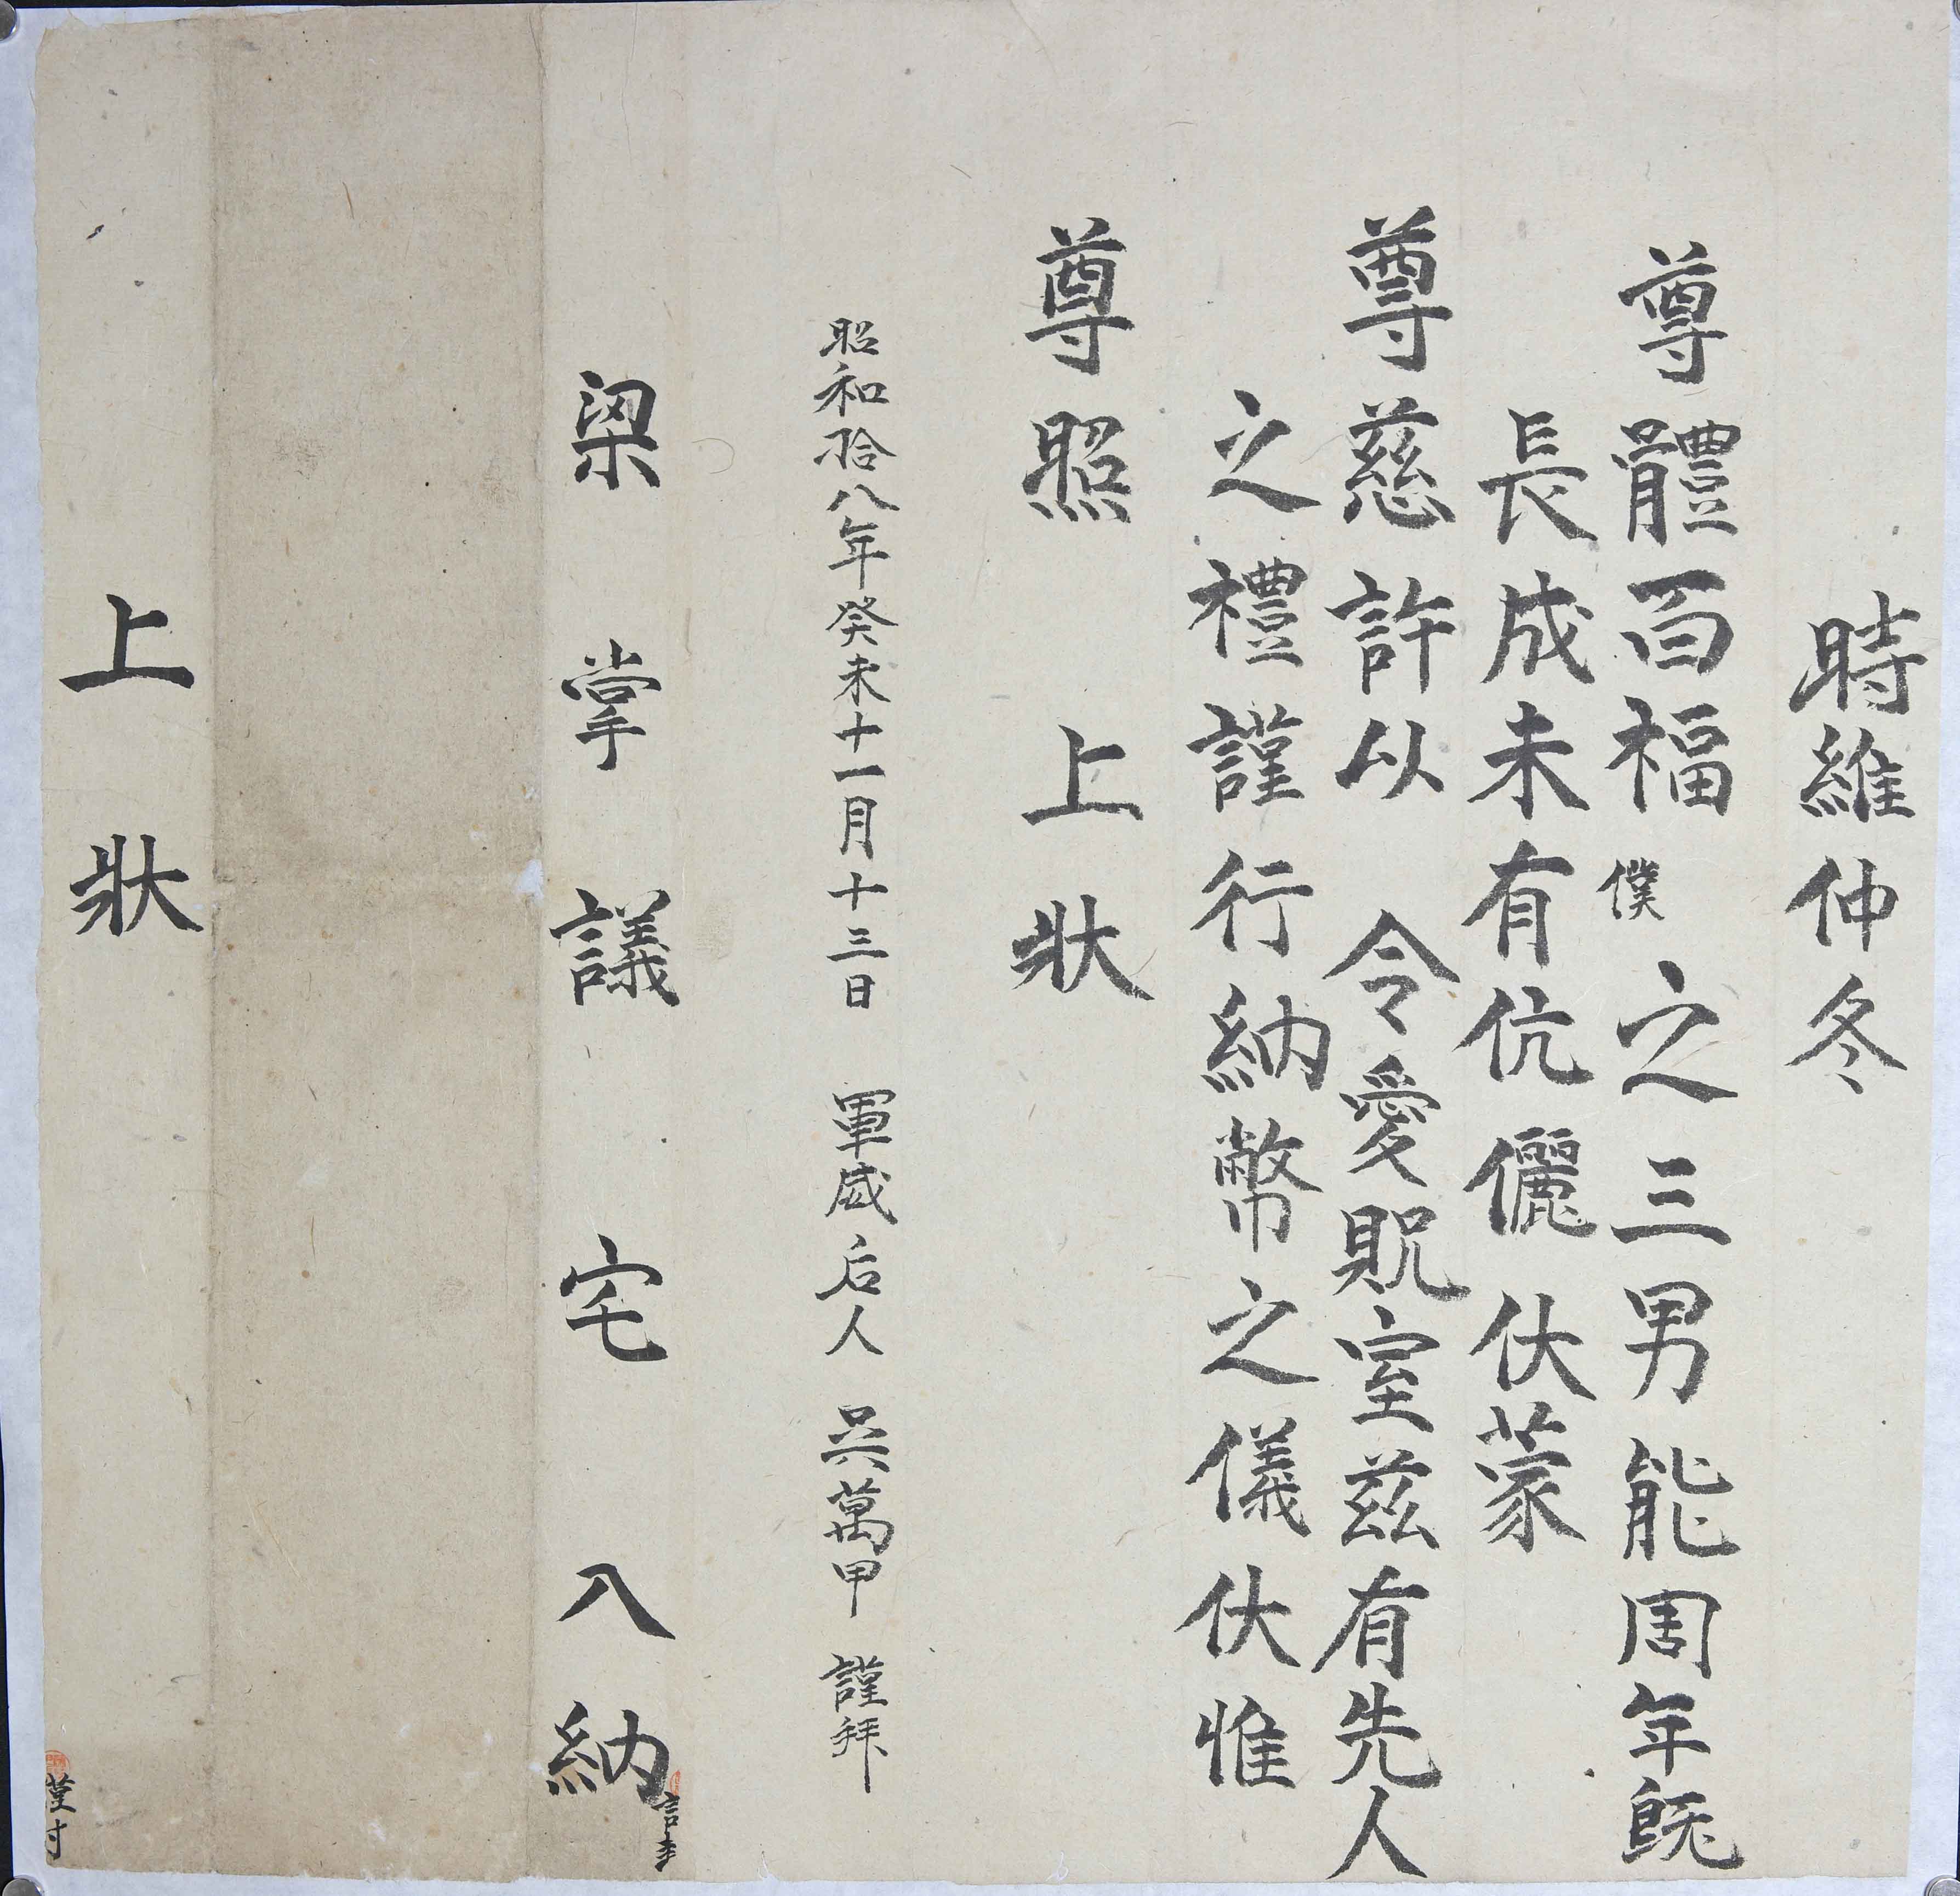 時維仲冬
尊體百福僕之三男能周年既
長成未有伉儷伏蒙
尊慈許以令愛貺室茲有先人
之禮謹行納幣之儀伏惟
尊照 上狀
昭和拾八年癸未十一月十三日 軍威后人 吳萬甲 謹拜
梁掌議宅入納
上狀